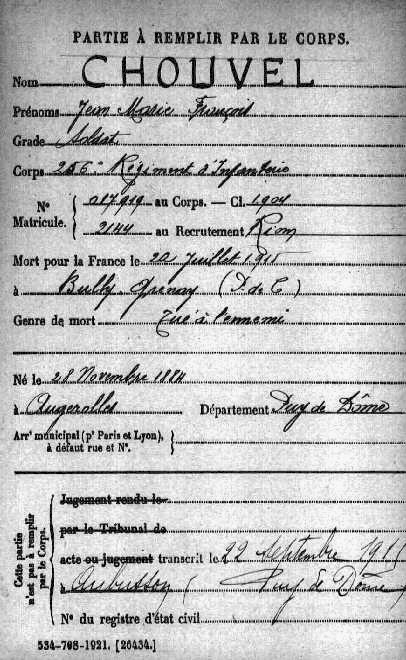 PARTIE À REMPLIR PAR LE CORPS.
Nom CHOUVEL
Prénoms Jean Marie François
Grade Soldat
Corps Régiment d'Infanterie
N° Matricule. { 017919 au Corps. — Cl. 1904
2144 au Recrutement Riom
Mort pour la France le 22 Juillet 1915
à Bully Grenay (P. de C.)
Genre de mort Tué à l'ennemi
Né le 28 Novembre 1884
à Augerolles Département Puy de Dôme
Arrt municipal (pr Paris et Lyon),
à défaut rue et N°.
Cette partie n'est pas à remplir par le Corps.
Jugement rendu le
par le Tribunal de
acte ou jugement transcrit le 22 Septembre 1915
à Aubusson (Puy de Dôme)
N° du registre d'état civil
534-708-1921. [26434.]